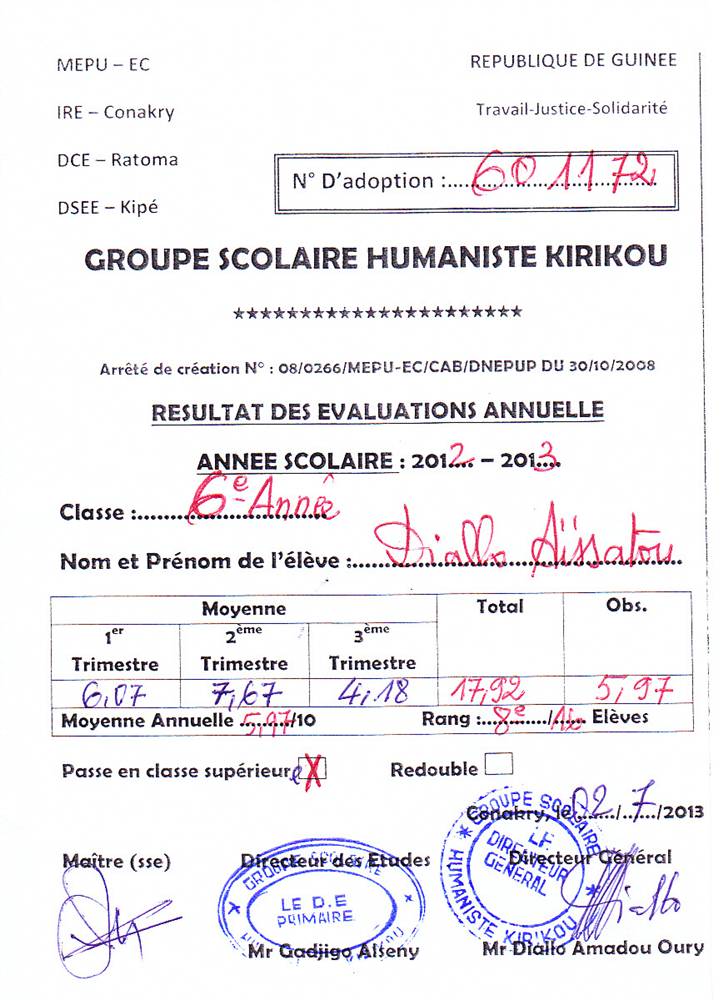 MEPU – EC
REPUBLIQUE DE GUINEE
IRE – Conakry
Travail-Justice-Solidarité
DCE – Ratoma
N° D'adoption :.....601172
DSEE – Kipé
GROUPE SCOLAIRE HUMANISTE KIRIKOU
**********************
Arrêté de création N° : 08/0266/MEPU-EC/CAB/DNEPUP DU 30/10/2008
RESULTAT DES EVALUATIONS ANNUELLE
ANNEE SCOLAIRE : 2012 – 2013
Classe : 6e Année
Nom et Prénom de l'élève : Diallo Aïssatou
Moyenne Total Obs.
1er Trimestre 2ème Trimestre 3ème Trimestre
6,07 7,67 4,18 17,92 5,97
Moyenne Annuelle 5,97/10 Rang : 8e/16 Elèves
Passe en classe supérieure X Redouble
Conakry, le 02/7/2013
Maître (sse) Directeur des Etudes Directeur Général
GROUPE SCOLAIRE
LE D.E
PRIMAIRE
GROUPE SCOLAIRE HUMANISTE KIRIKOU
LE DIRECTEUR GENERAL
Diallo
Mr Gadjigo Alseny Mr Diallo Amadou Oury